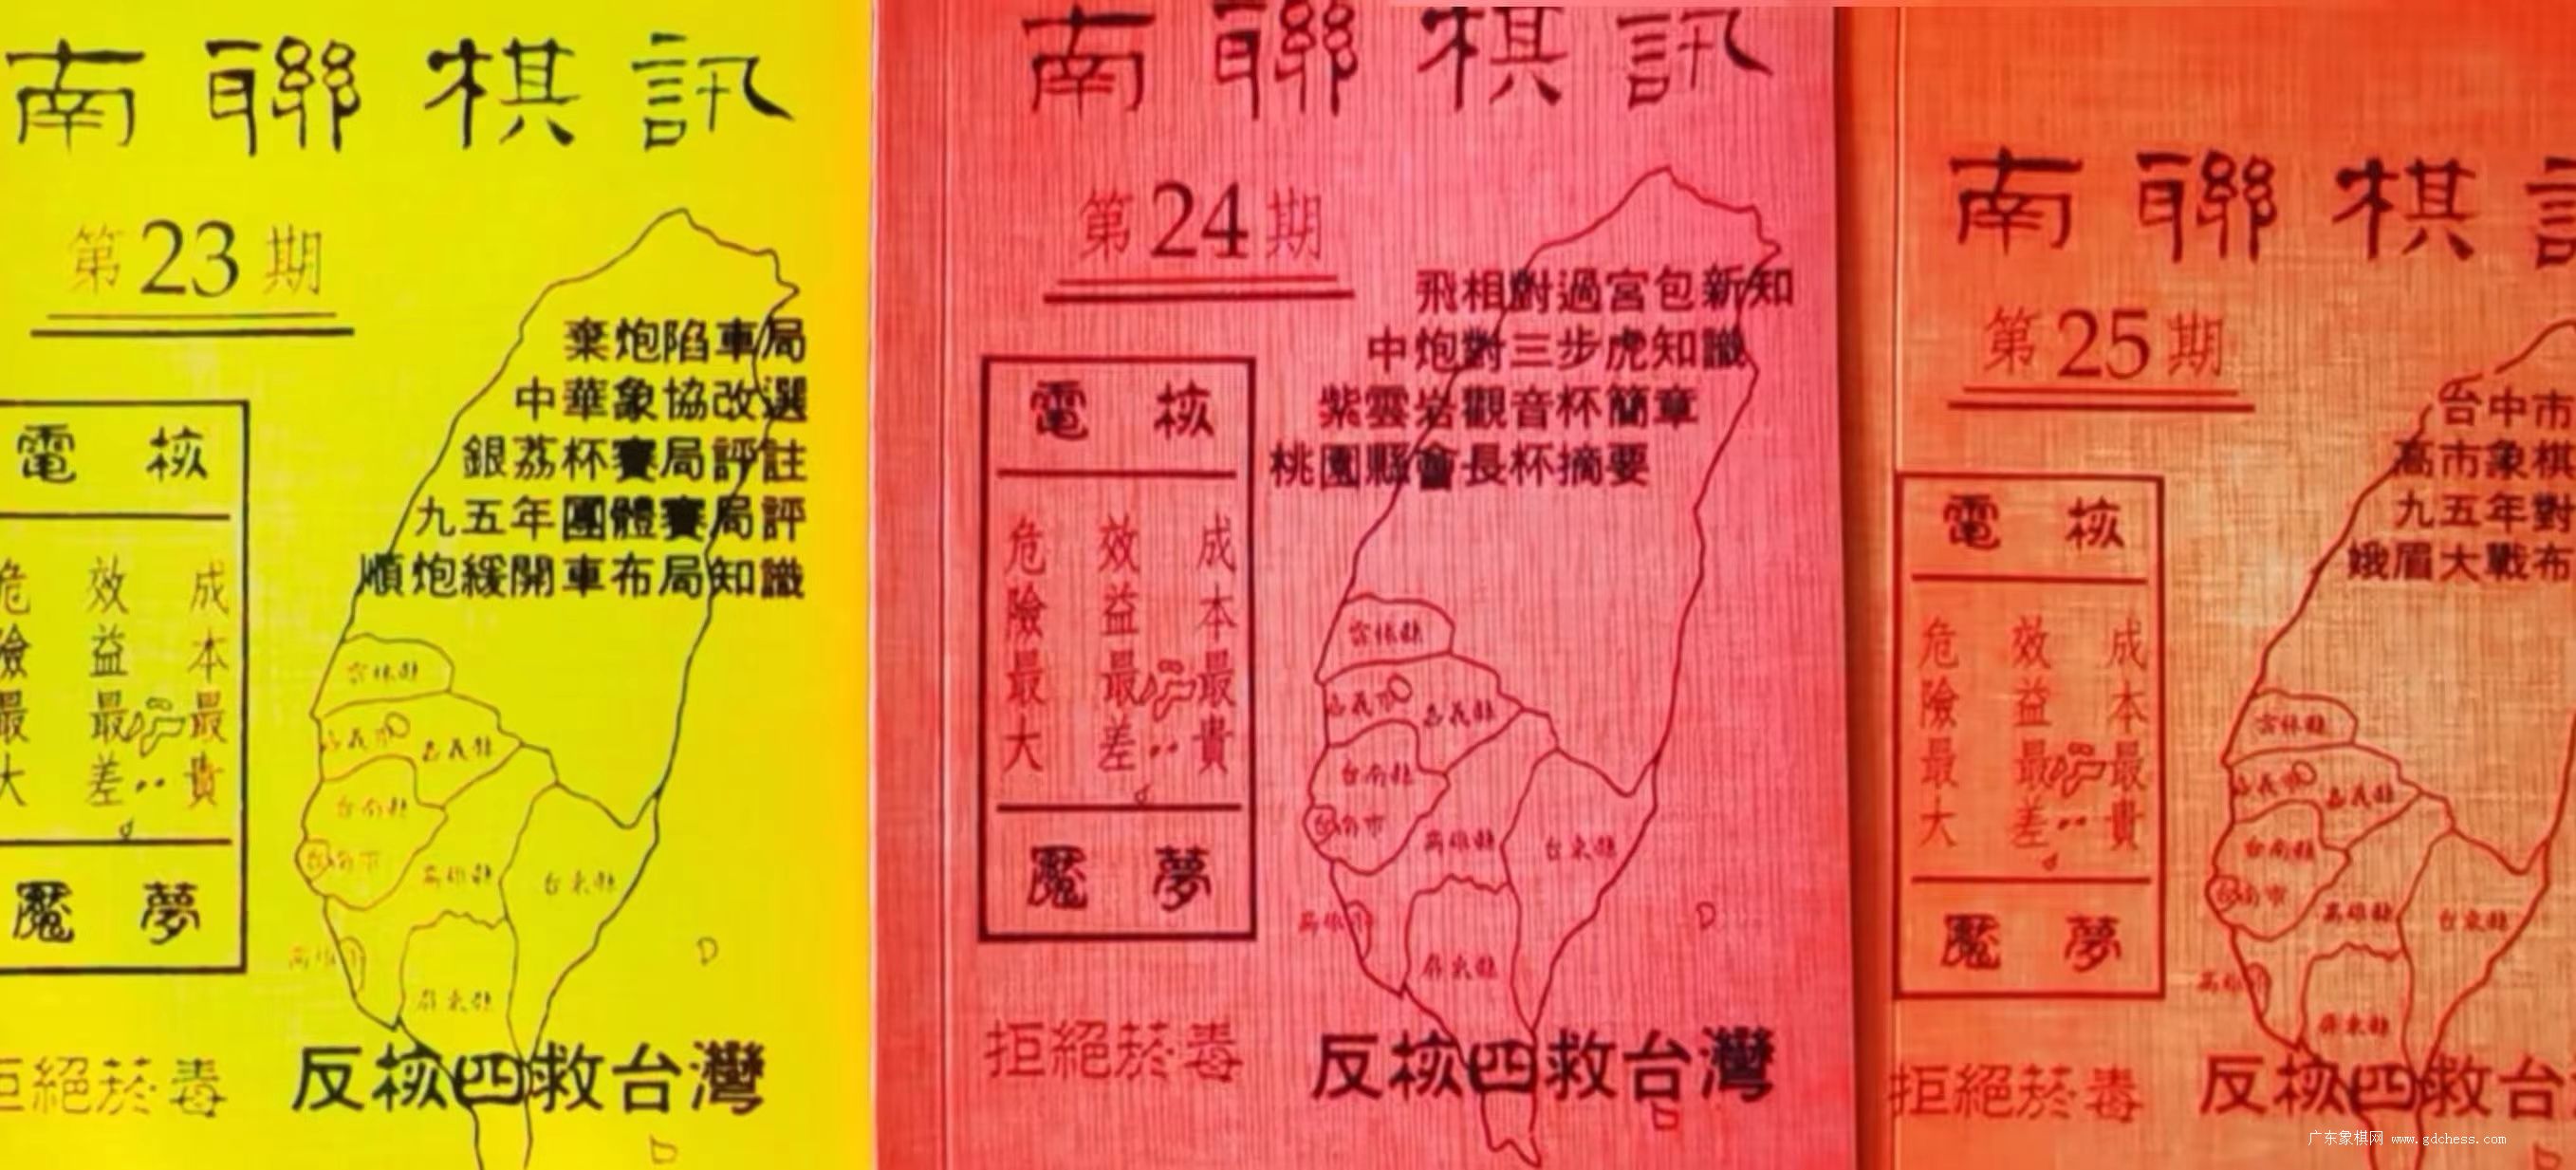 南聯棋訊
第23期
棄炮陷車局
中華象協改選
銀荔杯賽局評註
九五年團體賽局評
順炮緩開車布局知識
電核
危險最大
效益最差
成本最貴
魘夢
雲林縣
嘉義市
嘉義縣
台南縣
台南市
高雄縣
台東縣
高雄市
屏東縣
拒絕菸毒
反核四救台灣
南聯棋訊
第24期
飛相對過宮包新知
中炮對三步虎知識
紫雲岩觀音杯簡章
桃園縣會長杯摘要
電核
危險最大
效益最差
成本最貴
魘夢
雲林縣
嘉義市
嘉義縣
台南縣
台南市
高雄縣
台東縣
高雄市
屏東縣
拒絕菸毒
反核四救台灣
南聯棋
第25期
台中市
高市象棋
九五年對
娥眉大戰布
電核
危險最大
效益最差
成本最貴
魘夢
雲林縣
嘉義市
嘉義縣
台南縣
台南市
高雄縣
台東縣
高雄市
屏東縣
拒絕菸毒
反核四救台
广东象棋网 www.gdchess.com